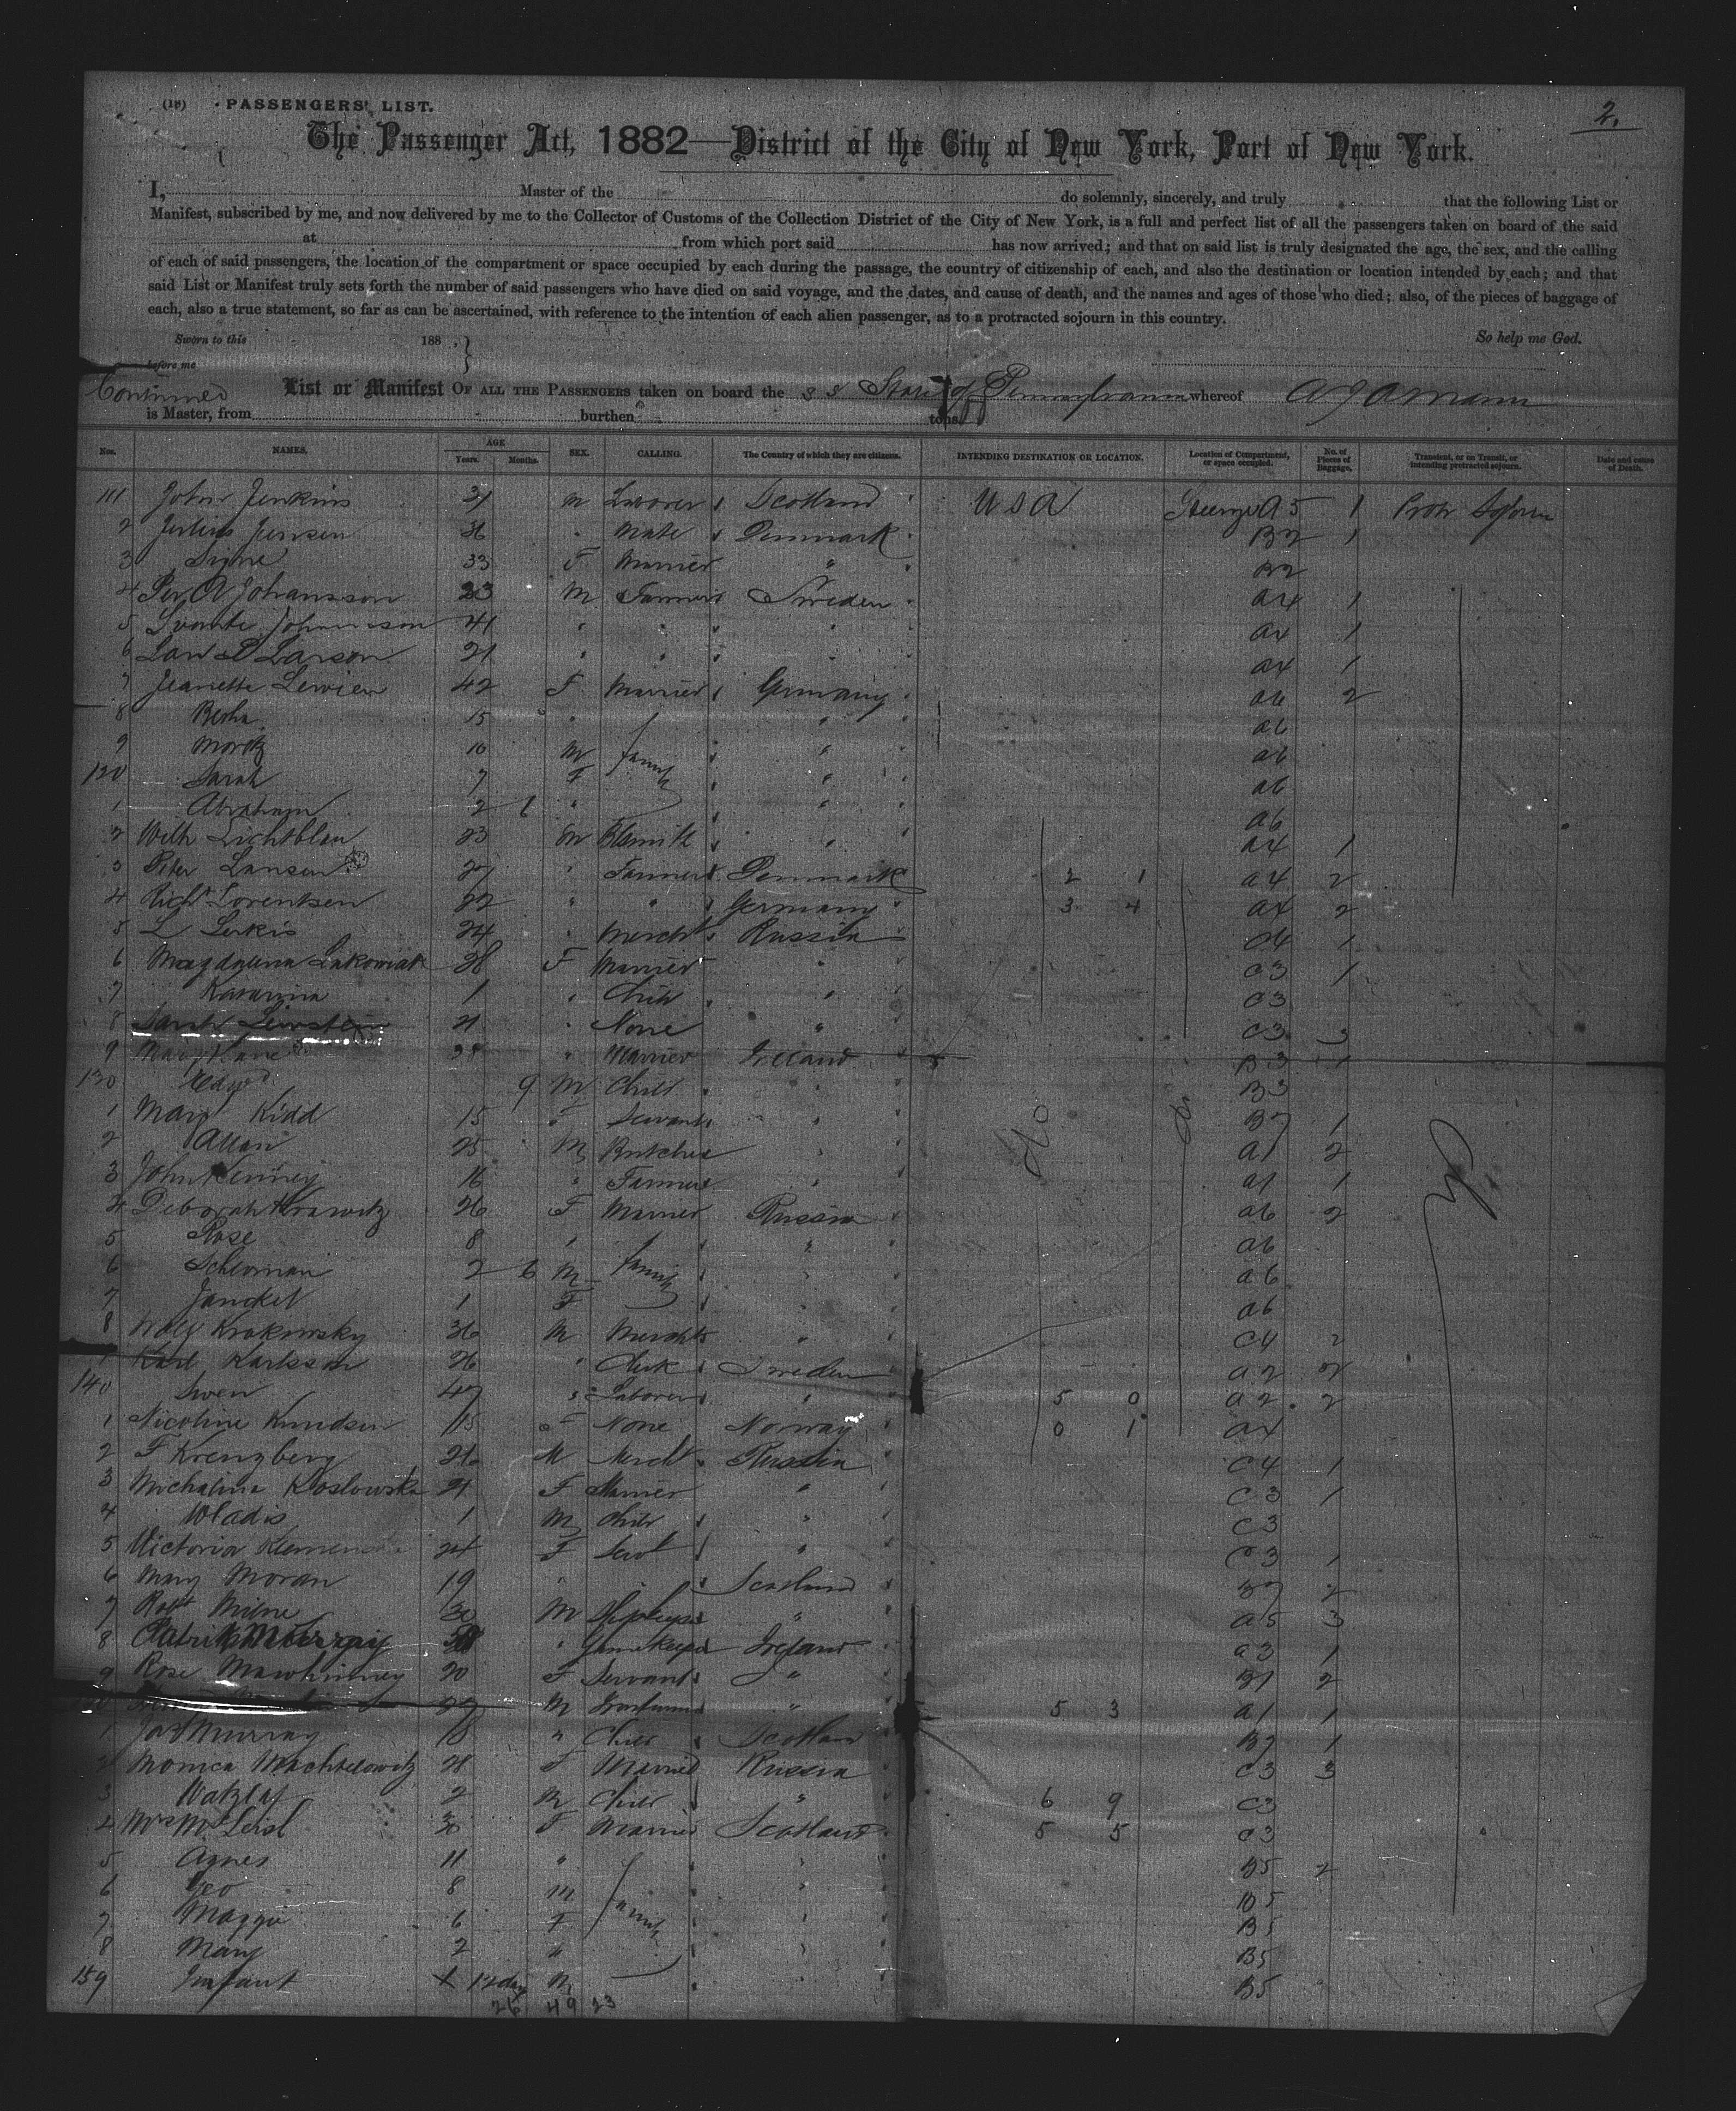 (18) PASSENGERS' LIST.
2.
The Passenger Act, 1882—District of the City of New York, Port of New York.
I, Master of the do solemnly, sincerely, and truly that the following List or
Manifest, subscribed by me, and now delivered by me to the Collector of Customs of the Collection District of the City of New York, is a full and perfect list of all the passengers taken on board of the said
at from which port said has now arrived; and that on said list is truly designated the age, the sex, and the calling
of each of said passengers, the location of the compartment or space occupied by each during the passage, the country of citizenship of each, and also the destination or location intended by each; and that
said List or Manifest truly sets forth the number of said passengers who have died on said voyage, and the dates, and cause of death, and the names and ages of those who died; also, of the pieces of baggage of
each, also a true statement, so far as can be ascertained, with reference to the intention of each alien passenger, as to a protracted sojourn in this country.
Sworn to this 188 , } So help me God.
before me
Continued List or Manifest OF ALL THE PASSENGERS taken on board the S S State of Pennsylvania whereof A J A Mann
is Master, from burthen tons.
Nos. NAMES. AGE Years. Months. SEX. CALLING. The Country of which they are citizens. INTENDING DESTINATION OR LOCATION. Location of Compartment, or space occupied. No. of Pieces of Baggage. Transient, or in Transit, or intending protracted sojourn. Date and cause of Death.
111 John Jenkins 31 M Laborer Scotland U S A Steerage A 5 1 Protr Sojourn
2 Julius Jensen 36 " Mate Denmark B2 1
3 Signe 33 F Married " B2
4 Per A Johansson 23 M Farmer Sweden A4 1
5 Svante Johansson 41 " " " A4 1
6 Lars P Larson 21 " " " A4 1
7 Jeanette Lewien 42 F Married Germany A6 2
8 15 " family " A6
9 Moritz 10 M " A6
120 Sarah 7 F " A6
1 Abraham 2 6 " " A6
2 Wilh Lichtblau 23 M Blsmith " A4 1
3 Peter Lansen 27 " Farmer Denmark 2 1 A4 2
4 Richt Lorentsen 22 " " Germany 3 4 A4 2
5 L Lerkis 24 " Mercht Russia C4 1
6 Magdalena Lakowiak 28 F Married " C3 1
7 Katarina 1 " Child " C3
8 Sarah 21 " None " C3 3
9 Mary Kane 38 " Married Ireland B3 1
130 Edwd 9 M Child " B3
1 Mary Kidd 15 F Servant " B7 1
2 Allan 25 M Butcher " A1 2
3 John Kenney 16 " Farmer " A1 1
4 Deborah Krawitz 26 F Married Russia A6 2
5 Rose 8 " family " A6
6 Schloman 2 6 M " A6
7 Janckel 1 F " A6
8 Wolf Krakowsky 36 M Mercht " C4 2
9 Karl Karlsson 26 " Clerk Sweden A2 2
140 Swen 47 " Laborer " 5 0 A2 2
1 Nicoline Knudsen 15 F None Norway 0 1 A4
2 F Krenzberg 26 M Mercht Russia C4 1
3 Michalina Koslowska 21 F Married " C3 1
4 Wladis 1 M Child " C3
5 Victoria 24 F Servt " C3 1
6 Mary Moran 19 " " Scotland B7 2
7 Robt Milne 30 M " A5 3
8 Patrik Murray " Gamekeeper Ireland A3 1
9 Rose Mawhinney 20 F Servant " B1 2
M " 5 3 A1 1
1 Jas Murray " Child Scotland B7 1
2 Monica Machtelowitz 28 F Married Russia C3 3
3 Watzlaf 2 M Child " 6 9 C3
4 Mrs 30 F Married Scotland 5 5 C3
5 Agnes 11 " family " B5 2
6 Geo 8 M " B5
7 Maggie 6 F " B5
8 Mary 2 " " B5
159 Infant 12 days M " B5
26 49 23